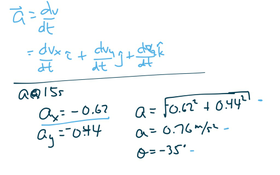 a⃗ = dv/dt
= dvx/dt î + dvy/dt ĵ + dvz/dt k̂
a@15s
ax = -0.62
ay = -0.44
a = √0.62² + 0.44²
a = 0.76 m/s²
θ = -35°